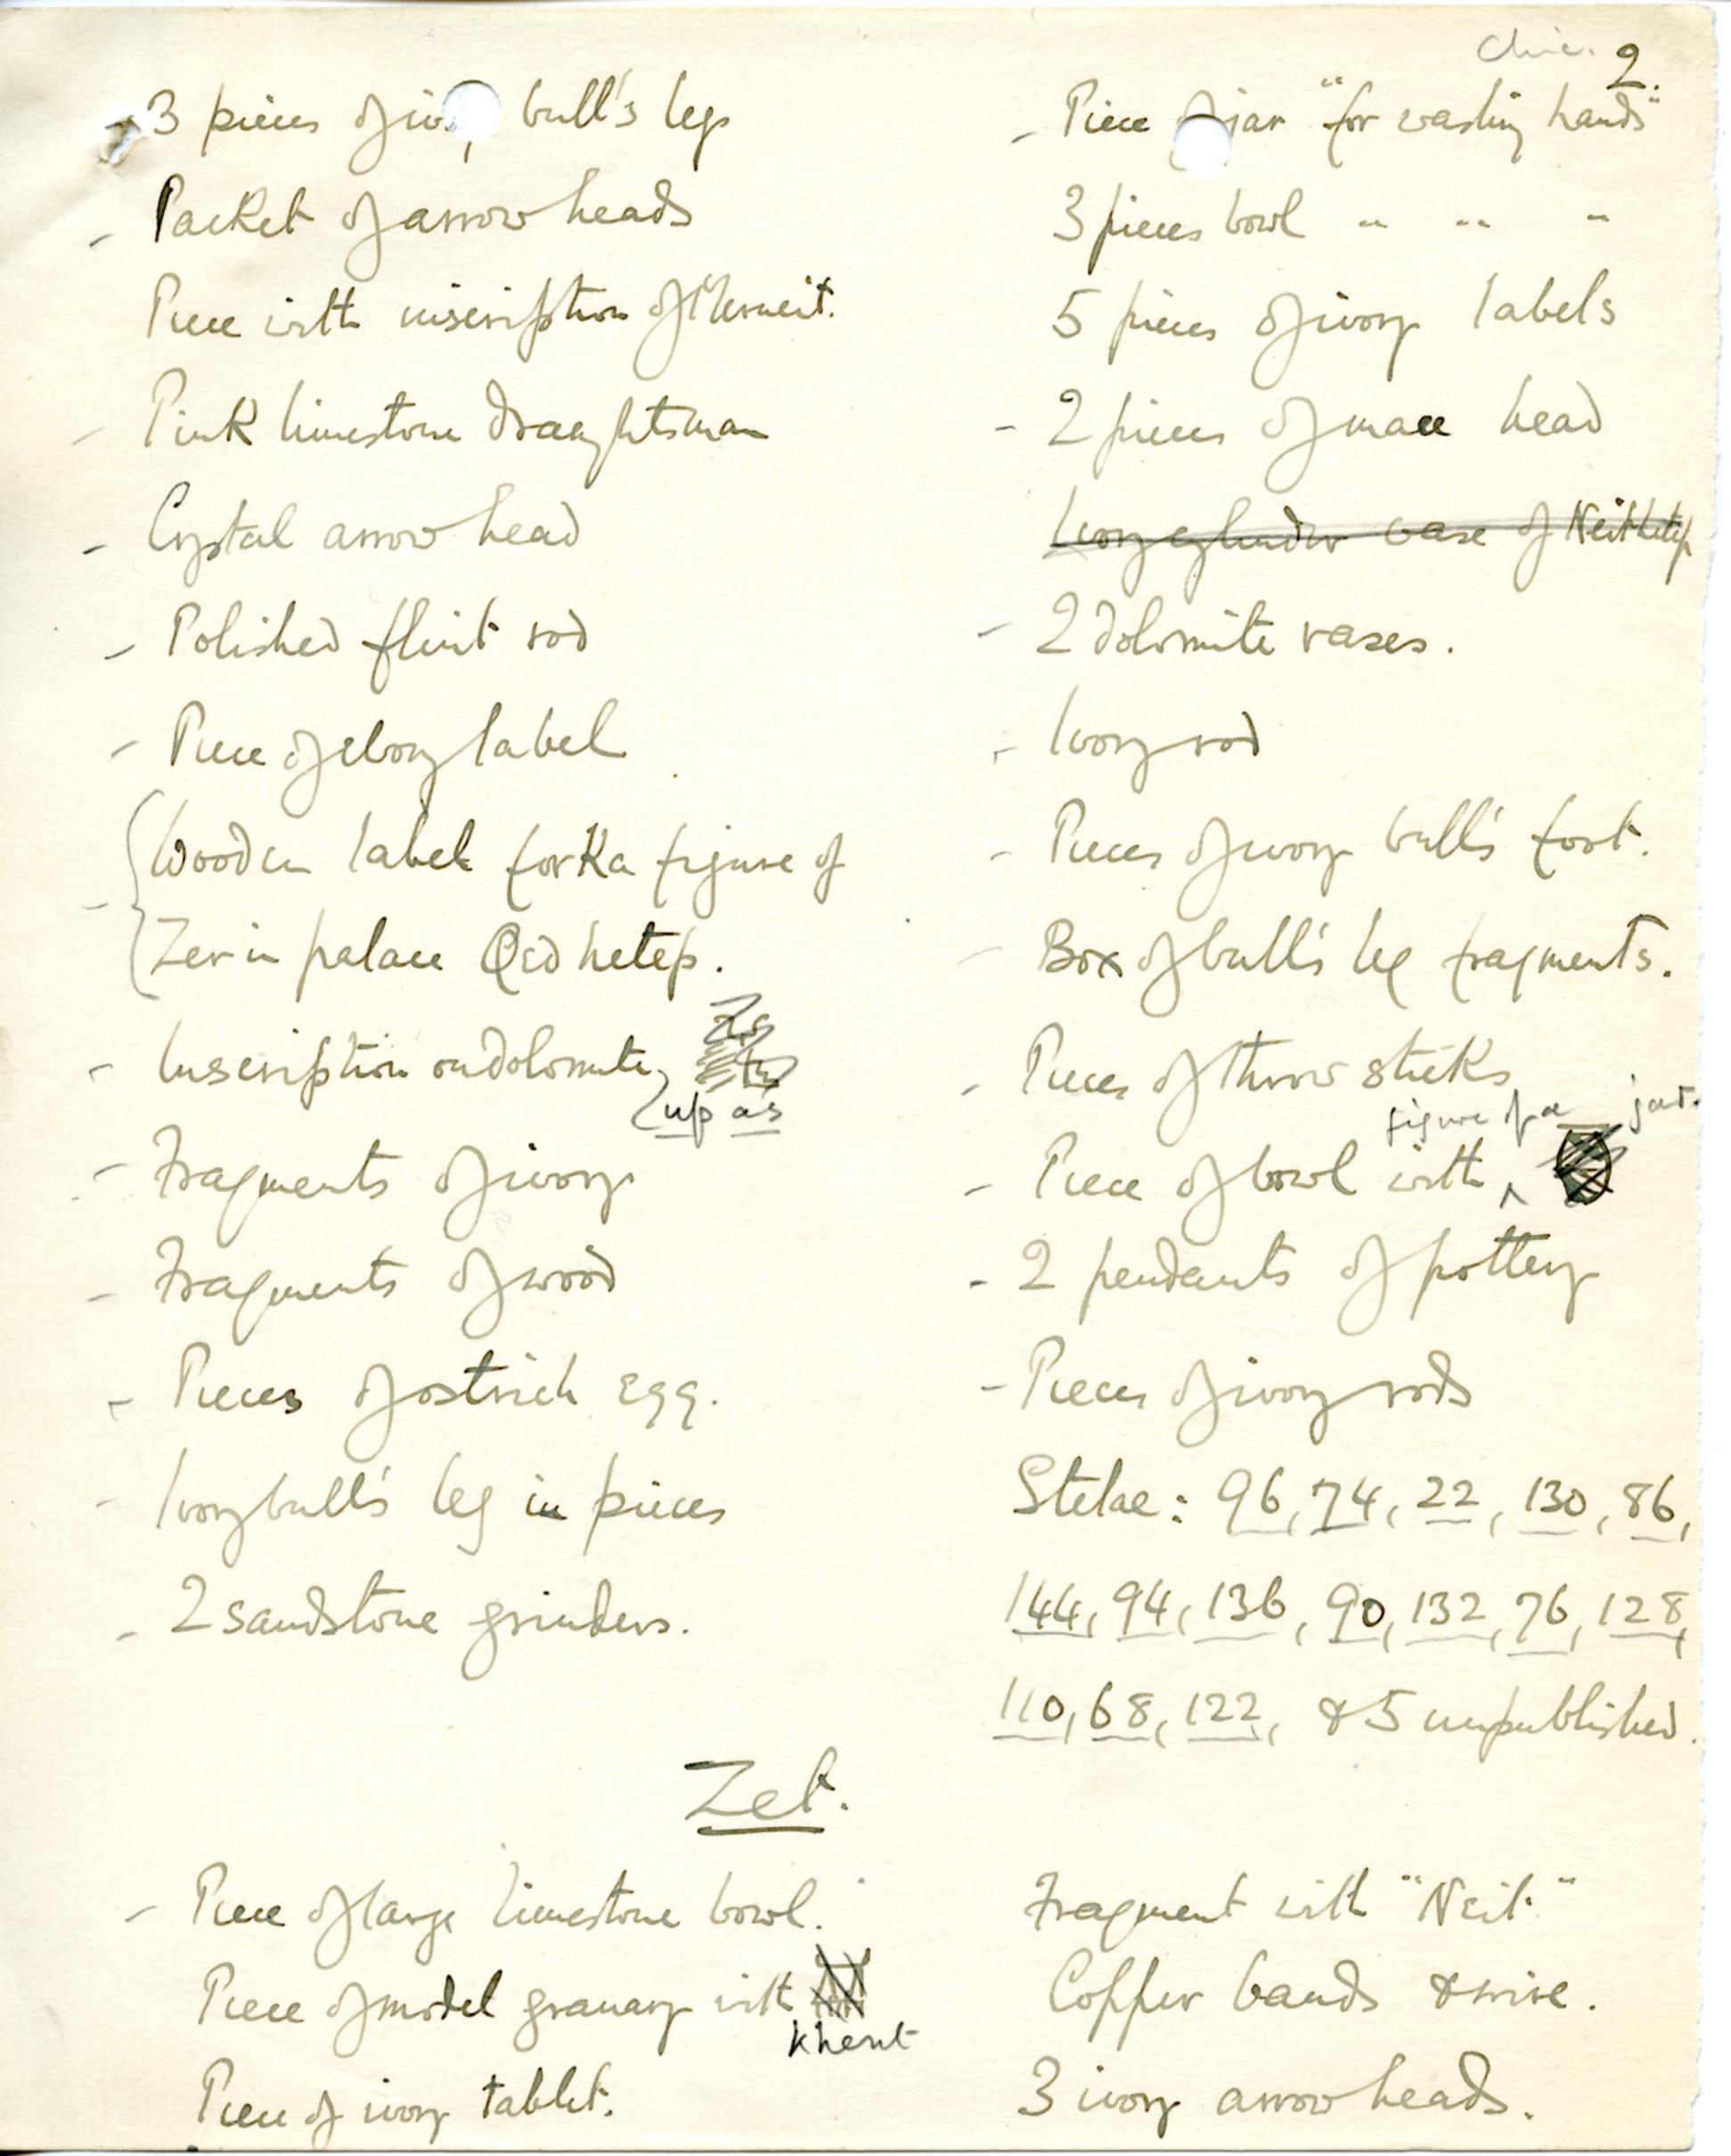 Chic. 2.
- 3 pieces of ivory bull's legs
- Packet of arrow heads
Piece with inscription of Merneit.
- Pink limestone draughtsman
- Crystal arrow head
- Polished flint rod
- Piece of ebony label
- Wooden label for Ka figure of
Zer in palace Qed hetep.
- Inscription on dolomite,
up as
- Fragments of ivory
- Fragments of wood
- Pieces of ostrich egg.
- Ivory bull's leg in pieces
- 2 sandstone grinders.
- Piece of jar "for washing hands"
3 pieces bowl " " "
5 pieces of ivory labels
- 2 pieces of mace head
Ivory cylinder vase of Neithetep
- 2 dolomite vases.
- Ivory rod
- Pieces of ivory bull's foot.
- Box of bull's leg fragments.
- Pieces of throw sticks
figure of a jar.
- Piece of bowl with ^
- 2 pendants of pottery
- Pieces of ivory rods
Stelae: 96, 74, 22, 130, 86,
144, 94, 136, 90, 132, 76, 128,
110, 68, 122, & 5 unpublished.
Zet.
- Piece of large limestone bowl.
Piece of model granary with
khent
Piece of ivory tablet.
Fragment with "Neit"
Copper bands & wire.
3 ivory arrow heads.